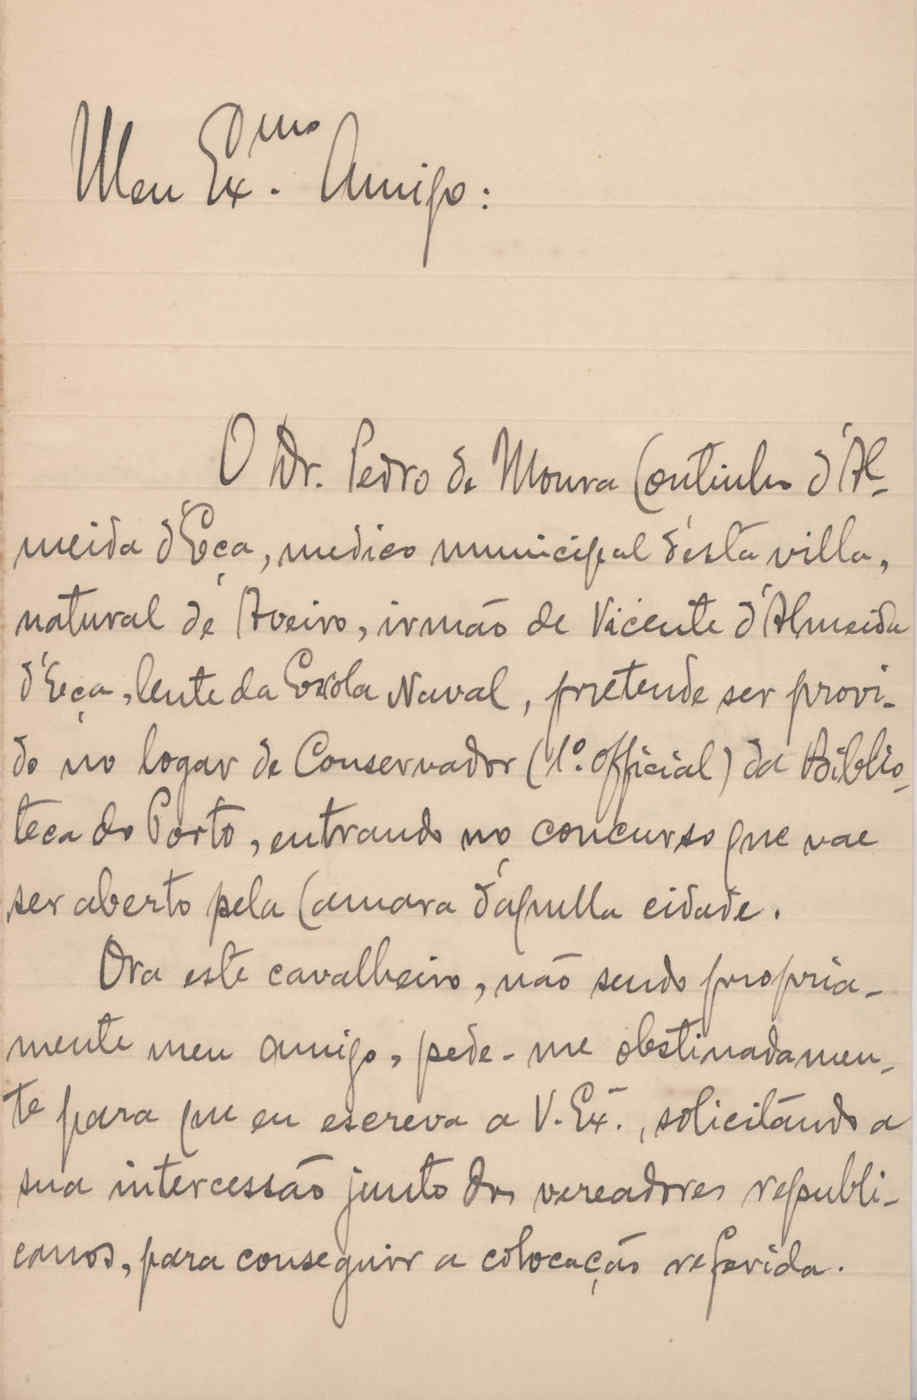 Meu Ex.mo Amigo:
O Dr. Pedro de Moura Coutinho d'Al-
meida d'Eça, medico municipal d'esta villa,
natural de Aveiro, irmão de Vicente d'Almeida
d'Eça, lente da Escola Naval, pretende ser provi-
do no logar de Conservador (1º. official) da Biblio-
teca do Porto, entrando no concurso que vae
ser aberto pela Camara d'aquella cidade.
Ora este cavalheiro, não sendo propria-
mente meu amigo, pede-me obstinadamen-
te para que eu escreva a V. Ex.ª, solicitando a
sua intercessão junto dos vereadores republi-
canos, para conseguir a colocação referida.